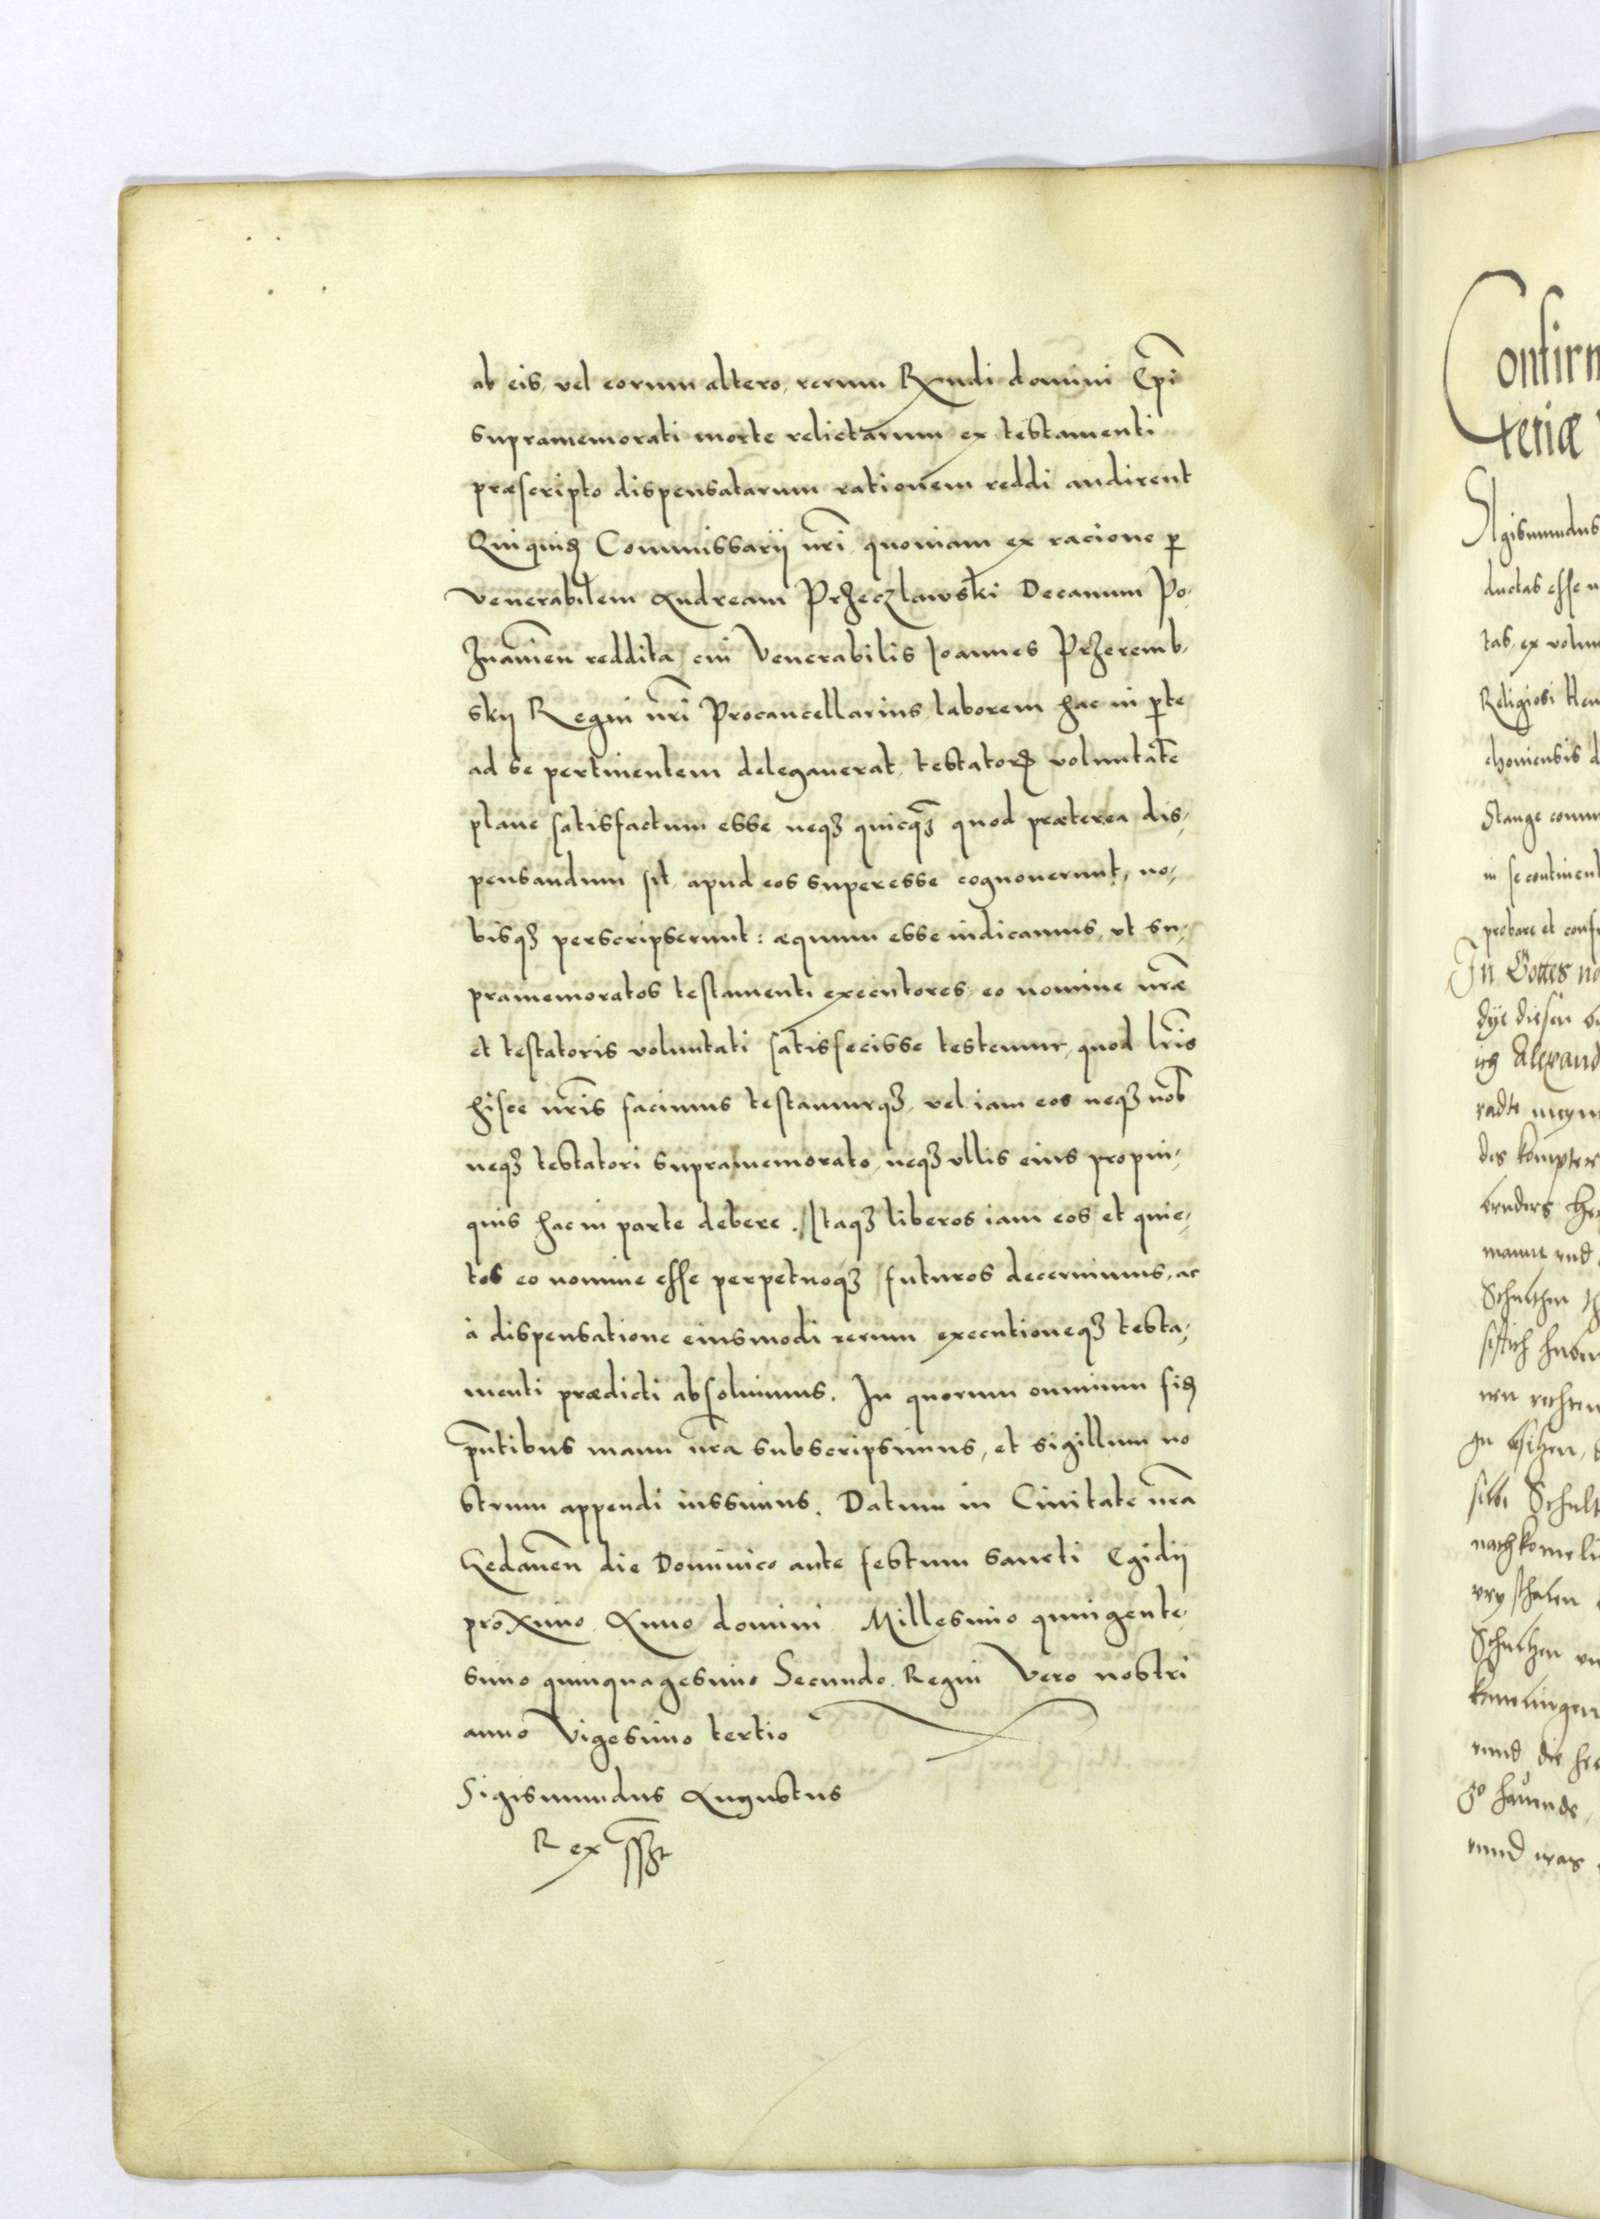 ab eis, vel eorum altero, rerum Rxndi domini Epi
supramemorati morte relictarum ex testamenti
præscripto dispensatarum rationem reddi audirent
Commissarij nri quoniam ex racione p
venerabilem Andream Przeczlawski Decanum Po,
znanien reddita, cui Venerabilis Joannes Przeremb,
skij Regni nri Procancellarius, laborem hac in pte
ad se pertinentem delegauerat, voluntate
plane satisfactum esse neqз quicqз quod præterea dis,
pensandum sit, apud eos superesse cognouerunt, no,
bisqз perscripserunt: æquum esse iudicamus, vt su,
pramemoratos testamenti executores, eo nomine nræ
et testatoris voluntati satisfecisse testemur, quod lris
hisce nris facimus testamurqз, vel iam eos neqз nob
neqз testatori supramemorato, neqз vllis eius propin,
quis hac in parte debere. Itaqз liberos iam eos et quie,
tos eo nomine esse perpetuoqз futuros decernimus, ac
à dispensatione eiusmodi rerum executioneqз testa,
menti prædicti absoluimus. In quorum omnium fid
pntibus manu nra subscripsimus, et sigillum no
strum appendi iussimus. Datum in Ciuitate nra
Gedanen die Dominico ante festum sancti Egidij
proximo Anno domini Millesimo quingente,
simo quinquagesimo Secundo. Regni Vero nostri
anno Vigesimo tertio
Sigismundus Augustus
Rex sszt
Confirm
teriæ
Sigismundus
ductas esse
tas, ex volun
Religiosi Hen
choniensis d
Stange comm
in se continent
probare et conf
In Gottes na
dÿe diesen
Alexand
radts
des kompters
bruders
manne vnd